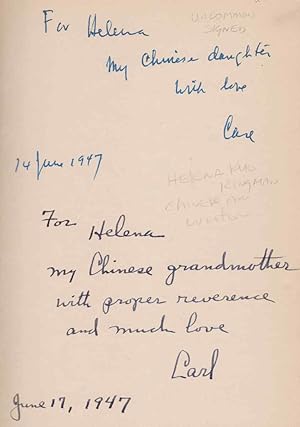 For Helena
UNCOMMON
SIGNED
my Chinese daughter
with love
14 June 1947
HELENA KUO
KINGMAN
CHINESE AM
For
Helena
my Chinese grandmother
with proper reverence
and much love
Carl
June 17, 1947